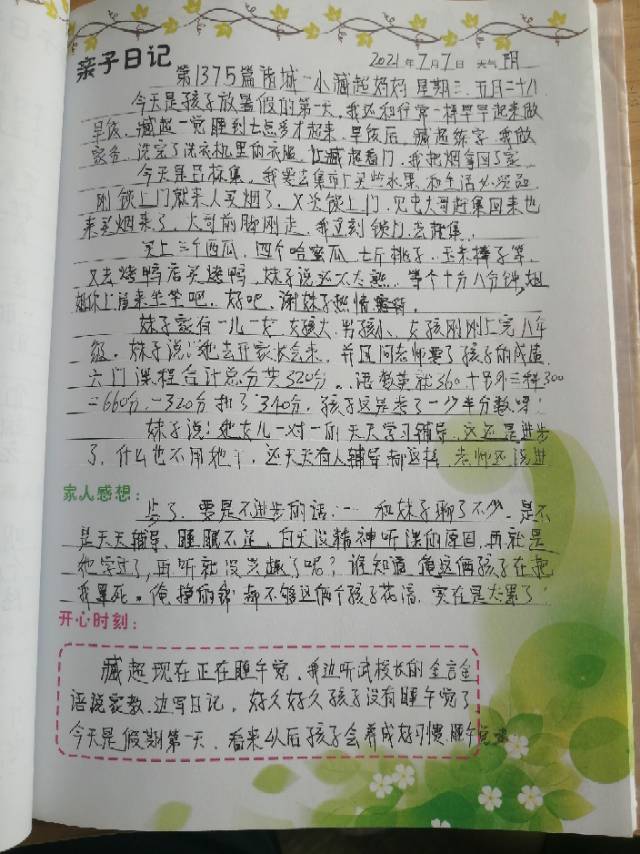 亲子日记
2021年7月7日 天气 阴
第1375篇诸城一小臧超妈妈 星期三.五月二十八
今天是孩子放暑假的第一天,我还和往常一样早早起来做
早饭.臧超一觉睡到七点多才起来.早饭后,臧超练字,我做
家务.洗完了洗衣机里的衣服,让臧超看门,我把烟拿回了家
今天是吕标集,我要去集市上买些水果和生活必须品,
刚锁上门就来人买烟了,又关锁上门,见屯大哥赶集回来也
来买烟来了,大哥前脚刚走,我立刻锁门,去赶集.
买上三个西瓜,四个哈蜜瓜,七斤桃子,玉米棒子等,
又去烤鸭店买烤鸭,妹子说还不太熟,等个十分八分钟,姐
姐你上溜来坐坐吧.好吧,谢妹子热情
妹子家有一儿一女,女孩大,男孩小、女孩刚刚上完八年
级.妹子说:她去开家长会来,并且问老师要了孩子的成绩,
六门课程合计总分共320分..语数英就360+另外三科300
=660分.-320分 扣了340分,孩子这是丢了一少半分数呀!
妹子说:她女儿一对一的天天学习辅导,这还是进步
了,什么也不用她干,还天天有人辅导都这样,老师还说进
家人感想:
步了.要是不进步的话…… 和妹子聊了不少,是不
是天天辅导、睡眠不足,白天没精神听课的原因,再就是
她学过了,再听就没兴趣了呢?谁知道,俺这俩孩子在把
我累死。俺挣的钱都不够这俩个孩子花消,实在是太累了!
开心时刻:
臧超现在正在睡午觉,我边听武校长的金言金
语说家教.边写日记,好久好久孩子没有睡午觉了
今天是假期第一天.看来以后孩子会养成好习惯.睡午觉